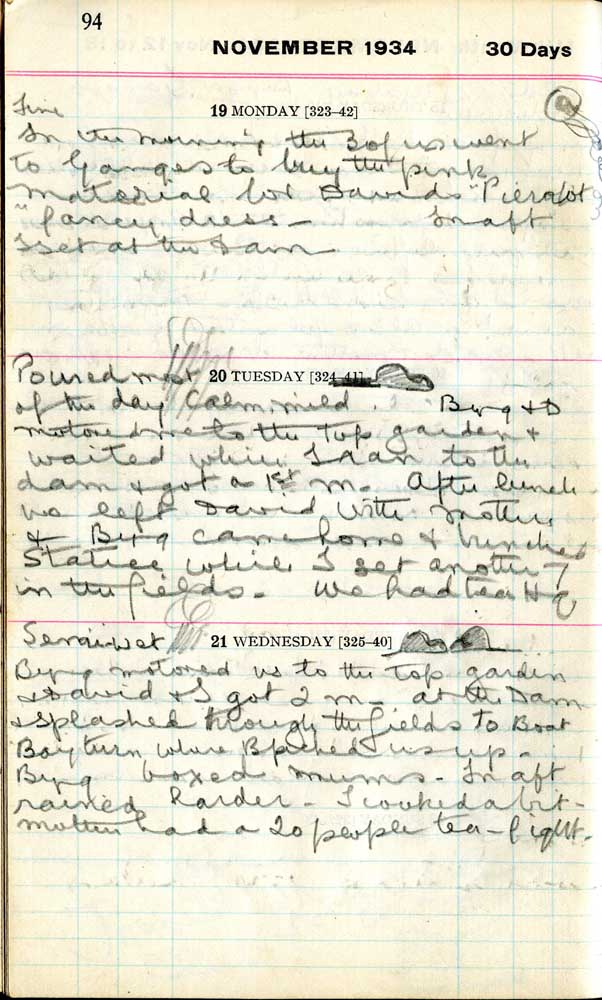 94
NOVEMBER 1934 30 Days
19 MONDAY [323-42]
Fine
In the morning the 3 of us went
to Ganges to buy the pink
material for Davids "Pierrot
"fancy dress - In aft
I set at the Dam
Poured most 20 TUESDAY [324-41]
of the day Calm, mild. Byng & D
motored me to the top garden &
waited while I ran to the
dam & got a 1st m. After lunch
we left David with mother
& Byng came home & bunched
Statice while I set another 7
in the fields - We had tea H Q
Semi-wet 21 WEDNESDAY [325-40]
Byng motored us to the top garden
& David & I got 2 m - at the Dam
& splashed through the fields to Boat
Bay turn where B picked us up -
Byng boxed mums - In aft
rained harder - I cooked a bit -
mother had a 20 people tea - fight -